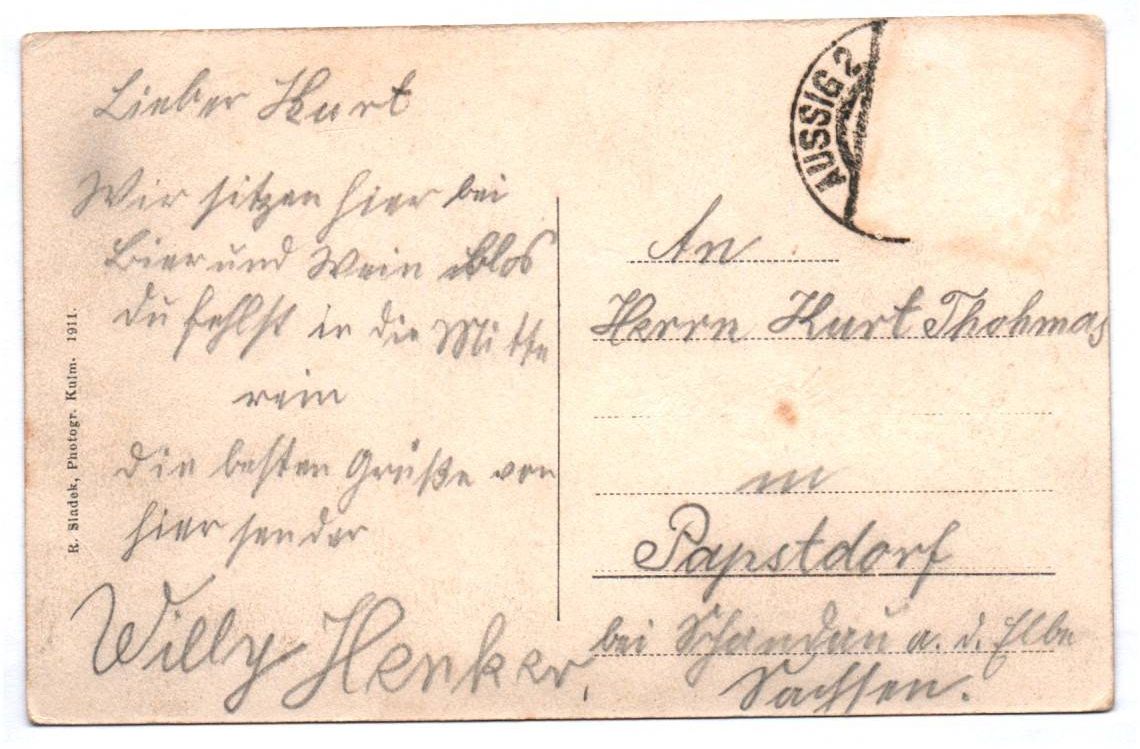 Lieber Kurt
Wir sitzen hier bei
Bier und Wein blos
du fehlst in die Mitte
rein
die besten Grüße von
hier sendet
Willy Henker.
R. Sladek, Photogr. Kulm. 1911.
AUSSIG 2
An
Herrn Kurt Thohmas
in
Papstdorf
bei Schandau a. d. Elbe
Sachsen.